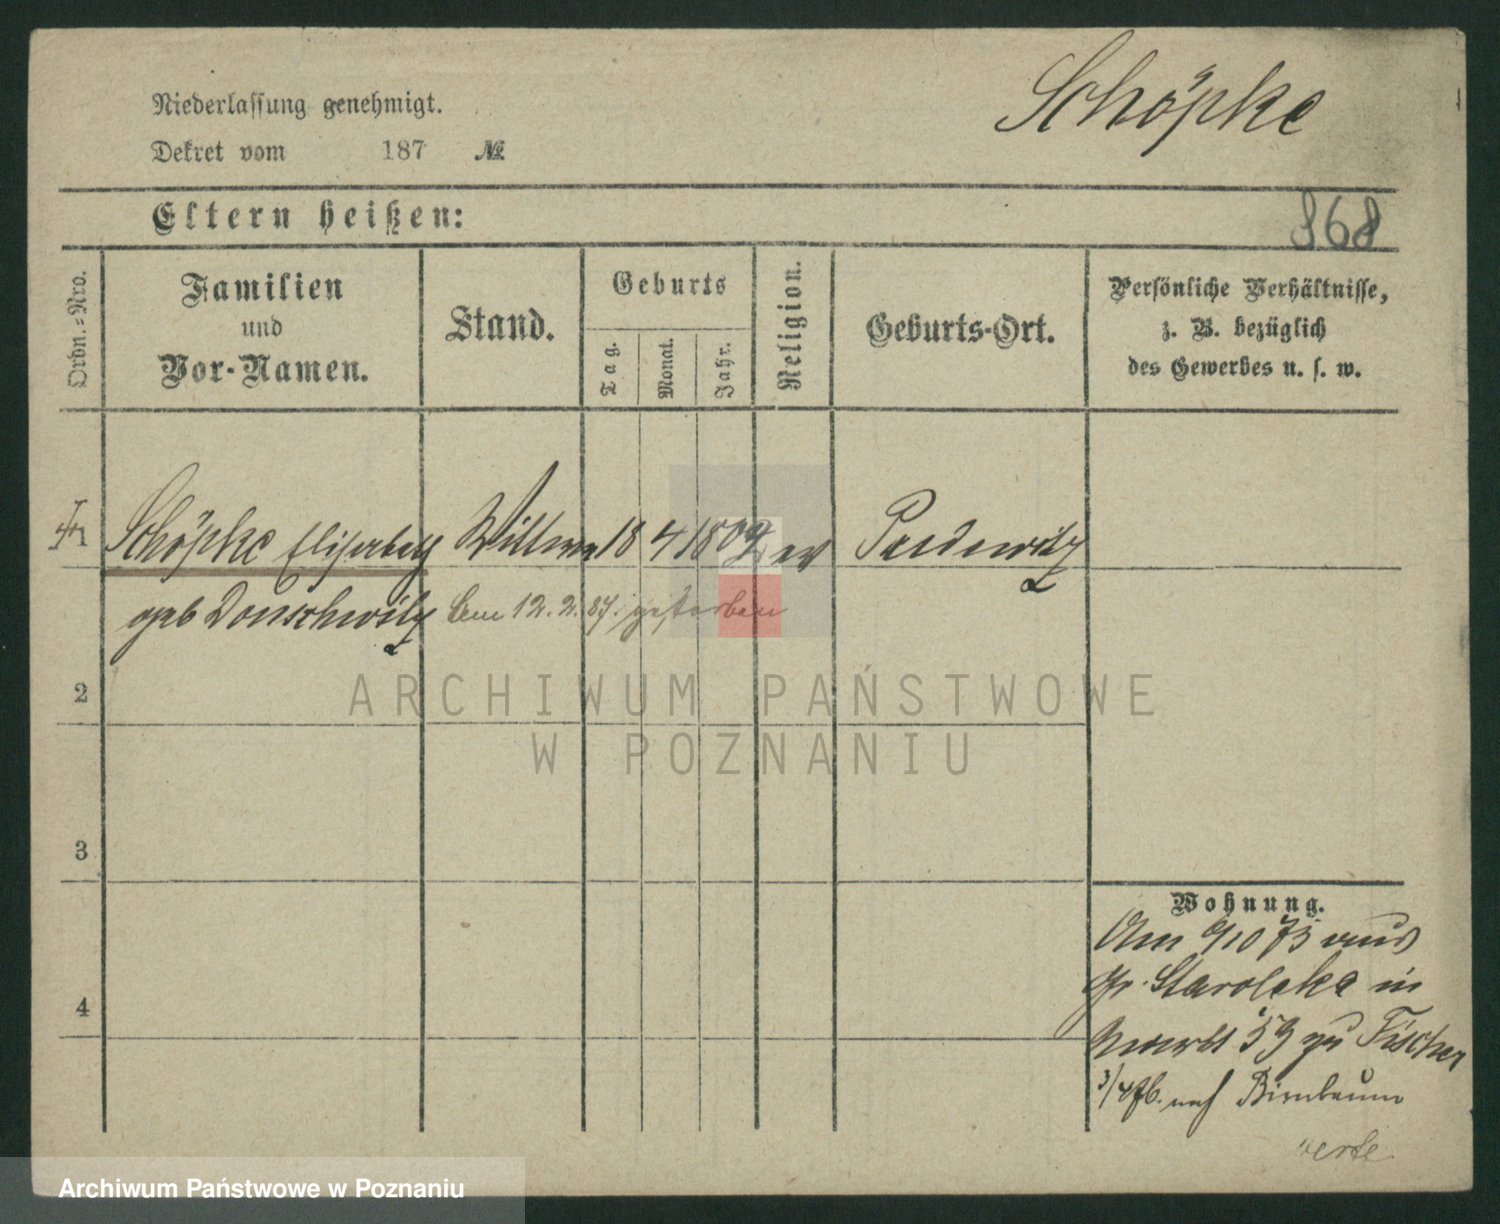 Schöpke
Niederlassung genehmigt.
Dekret vom 187 №
Eltern heißen:
868
Ordn.-Nro.
Familien
und
Vor-Namen.
Stand.
Geburts
Tag.
Monat.
Jahr.
Religion.
Geburts-Ort.
Persönliche Verhältnisse,
z. B. bezüglich
des Gewerbes u. s. w.
1 Schöpke Elisabeth Wittwe 18 4 1809 ev Pudewitz
geb Donschwitz Am 12.2.87. gestorben
2
ARCHIWUM PAŃSTWOWE
W POZNANIU
3
4
Wohnung.
Am 9/10 73 aus
Gr. Staroleka in
59 zu Fischer
3/4 76. nach Birnbaum
Archiwum Państwowe w Poznaniu